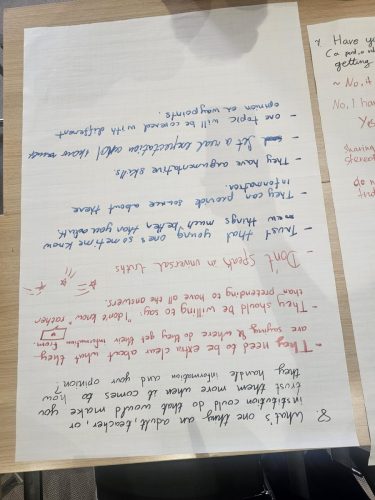 8. What's one thing an adult, teacher, or,
institution could do that would make you
trust them more when it comes to how
they handle information and your opinion?
- They need to be extra clear about what they
are saying & where do they get their information from
- They should be willing to say: "I don't know" rather
than pretending to have all the answers.
Don't speak in universal truths
- Trust that young ones sometime know
new things much better than you adult.
- They can provide source about there
information.
- They have argumentative skills
- Set a real expectation
- one topic will be covered with different
opinion or way points.
Have yo
getting
~ No, it
No, I ha
Yes
Sharing